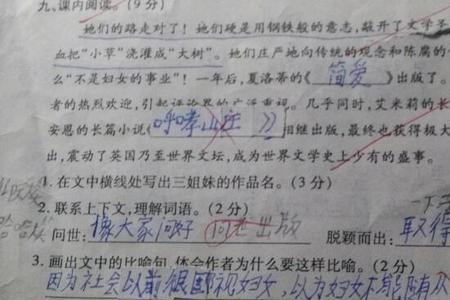 九、课内阅读。(9分)
她们的路走对了！她们硬是用钢铁般的意志，敲开了文学圣
血把“小草”浇灌成“大树”。她们庄严地向传统的观念和陈腐的
么“不是妇女的事业”！一年后，夏洛蒂的《 简爱 》出版了。
者的热烈欢迎，引起评论界的广泛重视。几乎同时，艾米莉的长
安恩的长篇小说《 呼哮山庄 》相继出版，最终也获得极大
出，震动了英国乃至世界文坛，成为世界文学史上少有的盛事。
1. 在文中横线处写出三姐妹的作品名。(3分)
2. 联系上下文，理解词语。(2分)
哈哈
问世： 像大家问好 问世出版 脱颖而出： 取得
3. 画出文中的比喻句，体会作者为什么要这样比喻。(2分)
因为社会以前很 妇女，以为妇女不